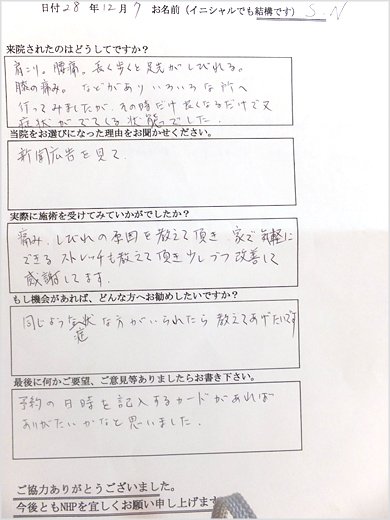 日付 28 年 12 月 7 お名前（イニシャルでも結構です） S.N
来院されたのはどうしてですか？
肩こり。腰痛。長く歩くと足先がしびれる。
膝の痛み。などがあり いろいろな所へ
行ってみましたが、その時だけ良くなるだけで又
症状がでてくる状態でした。
当院をお選びになった理由をお聞かせください。
新聞広告を見て、
実際に施術を受けてみていかがでしたか？
痛み、しびれの原因を教えて頂き、家で気軽に
できるストレッチも教えて頂き少しづつ改善して
感謝してます。
もし機会があれば、どんな方へお勧めしたいですか？
同じような症状な方がいられたら教えてあげたいです
最後に何かご要望、ご意見等ありましたらお書き下さい。
予約の日時を記入するカードがあれば
ありがたいかなと思いました。
ご協力ありがとうございました。
今後ともNHPを宜しくお願い申し上げます